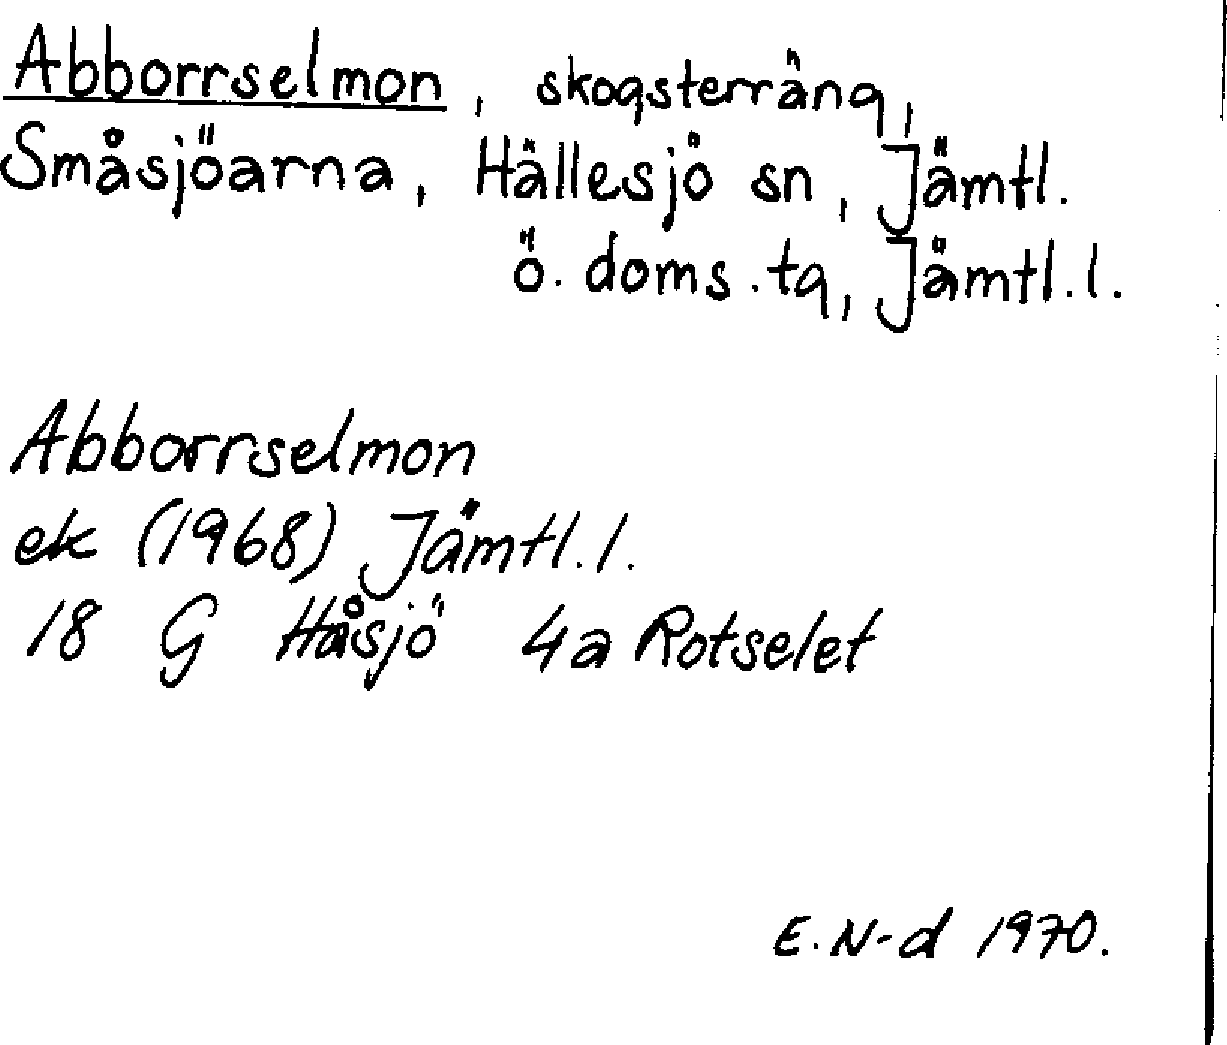 Abborrselmon, skogsterräng,
Småsjöarna, Hällesjö sn, Jämtl.
ö. doms.tg, Jämtl.l.
Abborrselmon
ek (1968) Jämtl.l.
18 G Håsjö 4a Rotselet
E.N-d 1970.